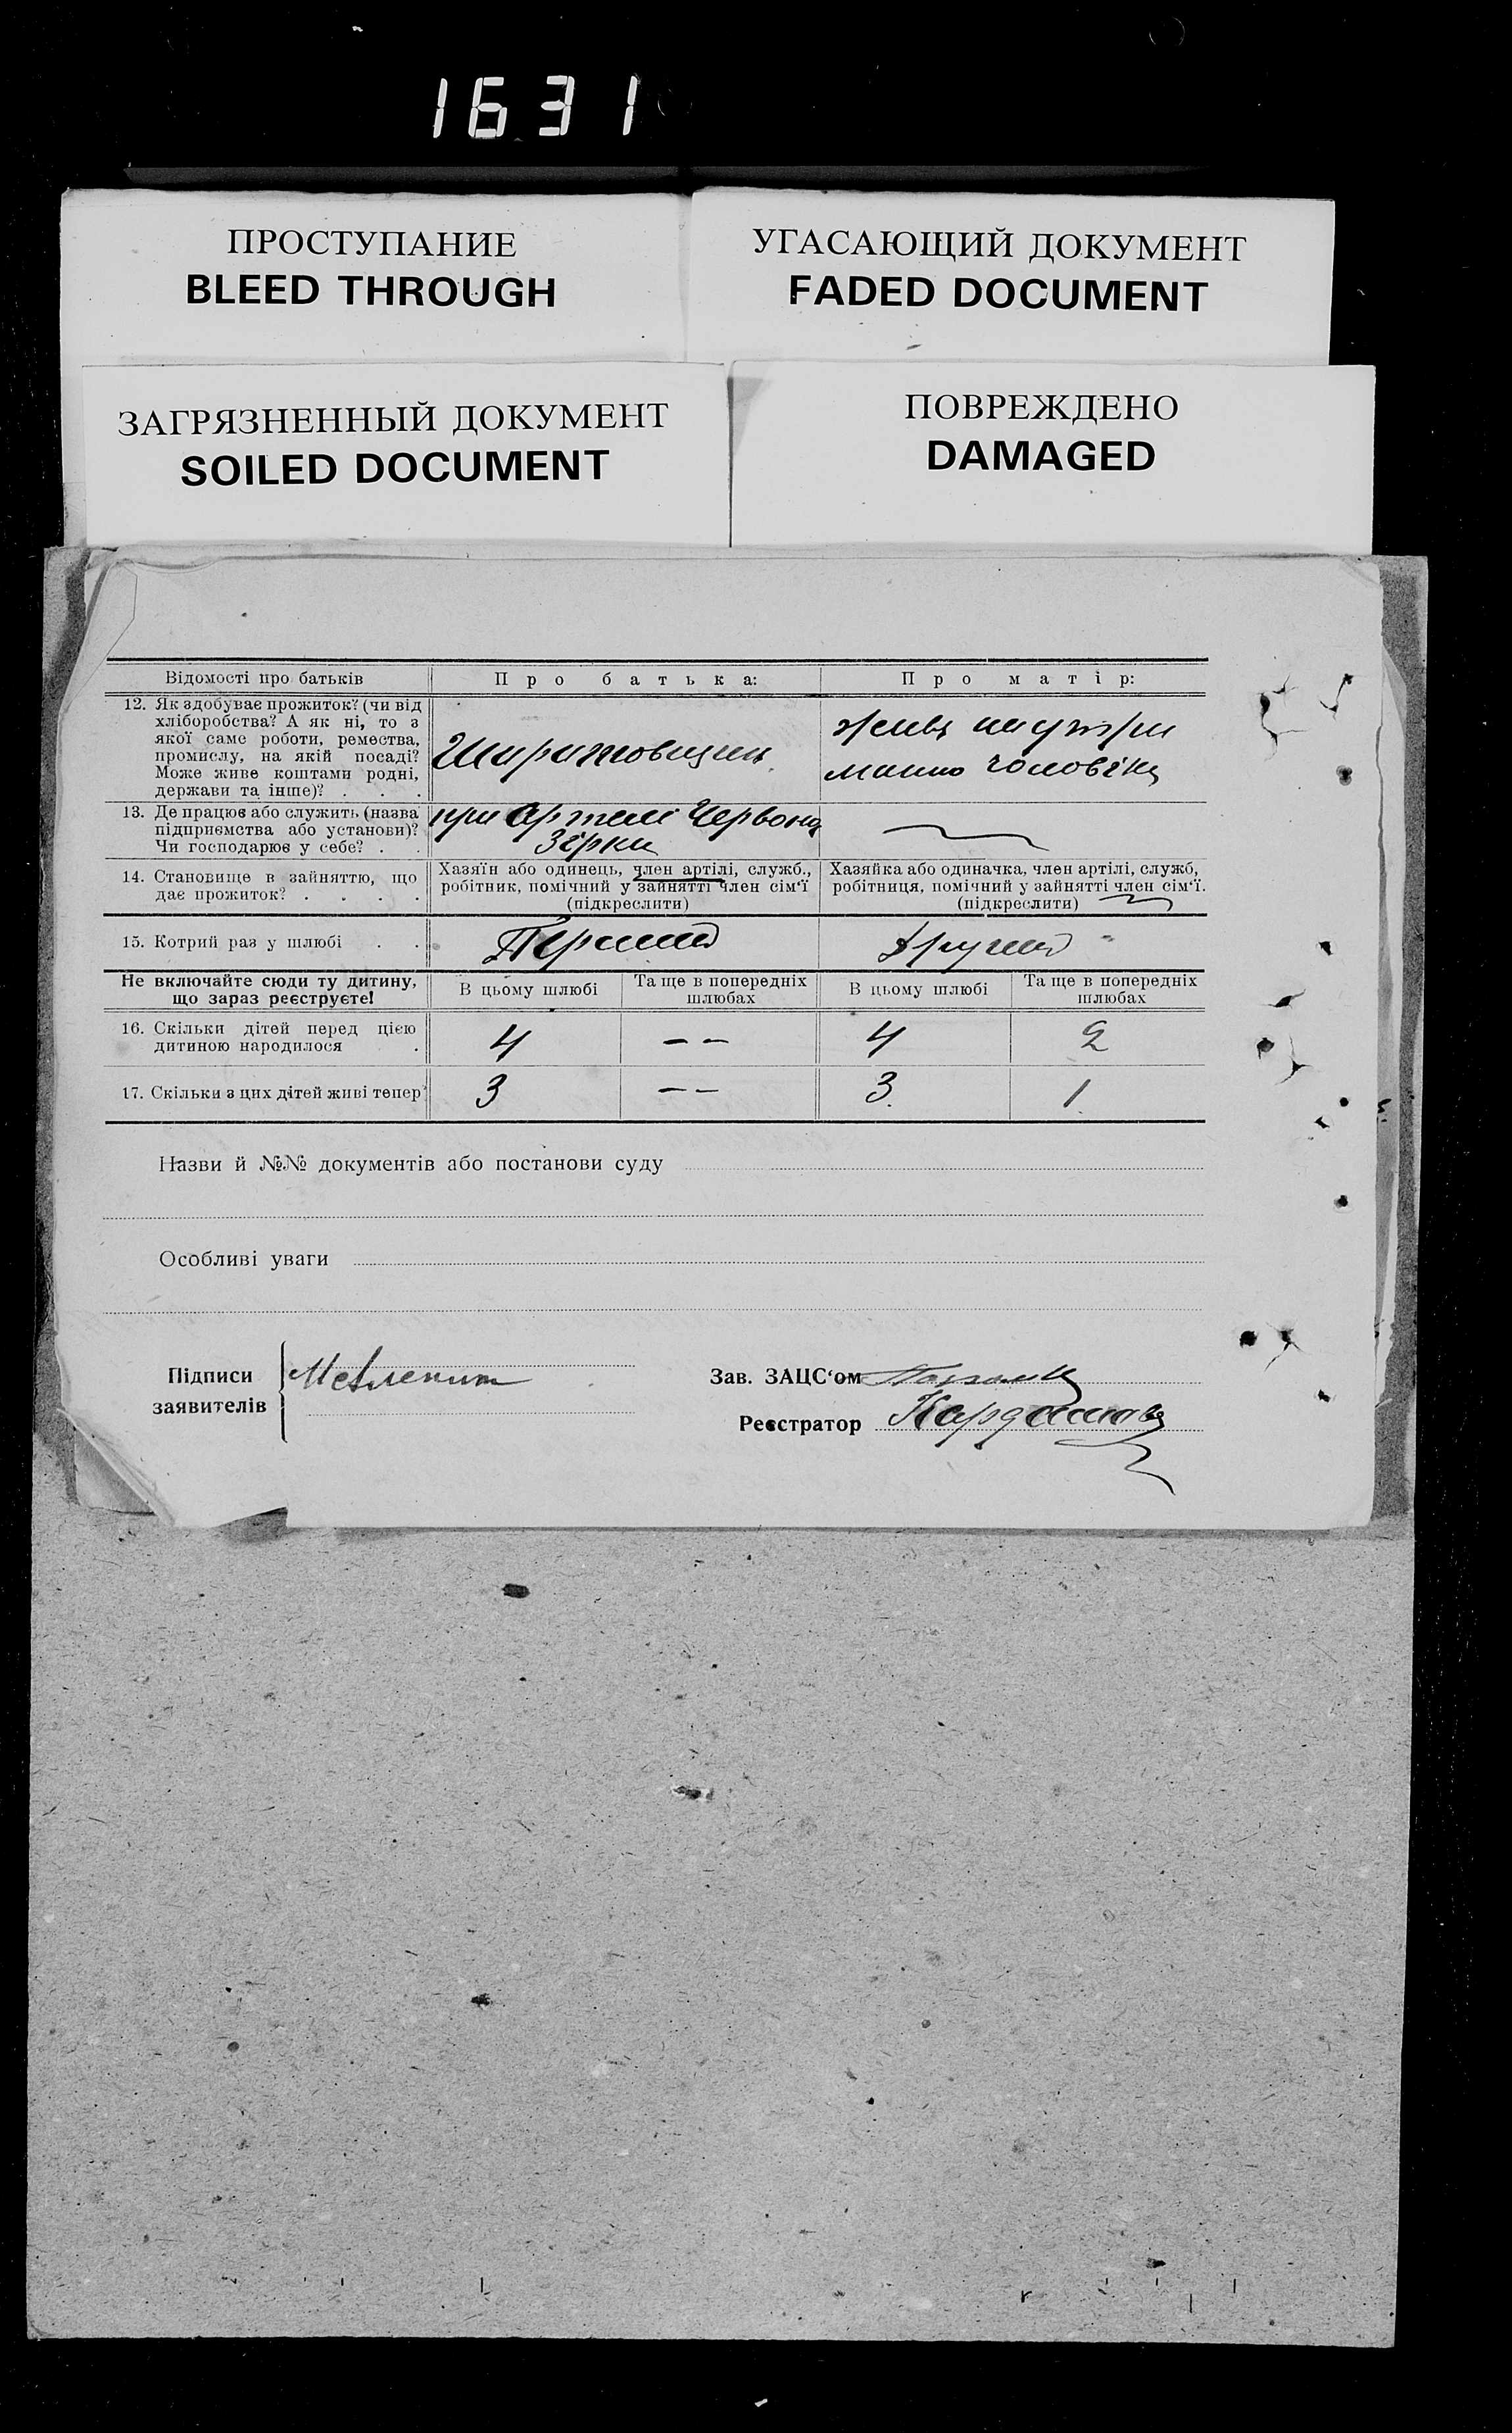 1631
ПРОСТУПАНИЕ
BLEED THROUGH
УГАСАЮЩИЙ ДОКУМЕНТ
FADED DOCUMENT
ЗАГРЯЗНЕННЫЙ ДОКУМЕНТ
SOILED DOCUMENT
ПОВРЕЖДЕНО
DAMAGED
Відомості про батьків
Про батька:
Про матір:
12. Як здобуває прожиток? (чи від
хліборобства? А як ні, то з
якої саме роботи, ремества,
промислу, на якій посаді?
Може живе коштами родні,
держави та інше)? . . .
чоловіка
13. Де працює або служить (назва
підприємства або установи)?
Чи господарює у себе? . .
при Артелі Червона
Зірка
14. Становище в зайняттю, що
дає прожиток? . . . .
Хазяїн або одинець, член артілі, служб.,
робітник, помічний у зайнятті член сім'ї
(підкреслити)
Хазяйка або одиначка, член артілі, служб,
робітниця, помічний у зайнятті член сім'ї.
(підкреслити)
15. Котрий раз у шлюбі . .
Перший
другий
Не включайте сюди ту дитину,
що зараз реєструєте!
В цьому шлюбі
Та ще в попередніх
шлюбах
В цьому шлюбі
Та ще в попередніх
шлюбах
16. Скільки дітей перед цією
дитиною народилося .
4
— —
4
2
17. Скільки з цих дітей живі тепер?
3
— —
3
1
Назви й №№ документів або постанови суду
Особливі уваги
Підписи
заявителів
Зав. ЗАЦС‘ом
Реєстратор